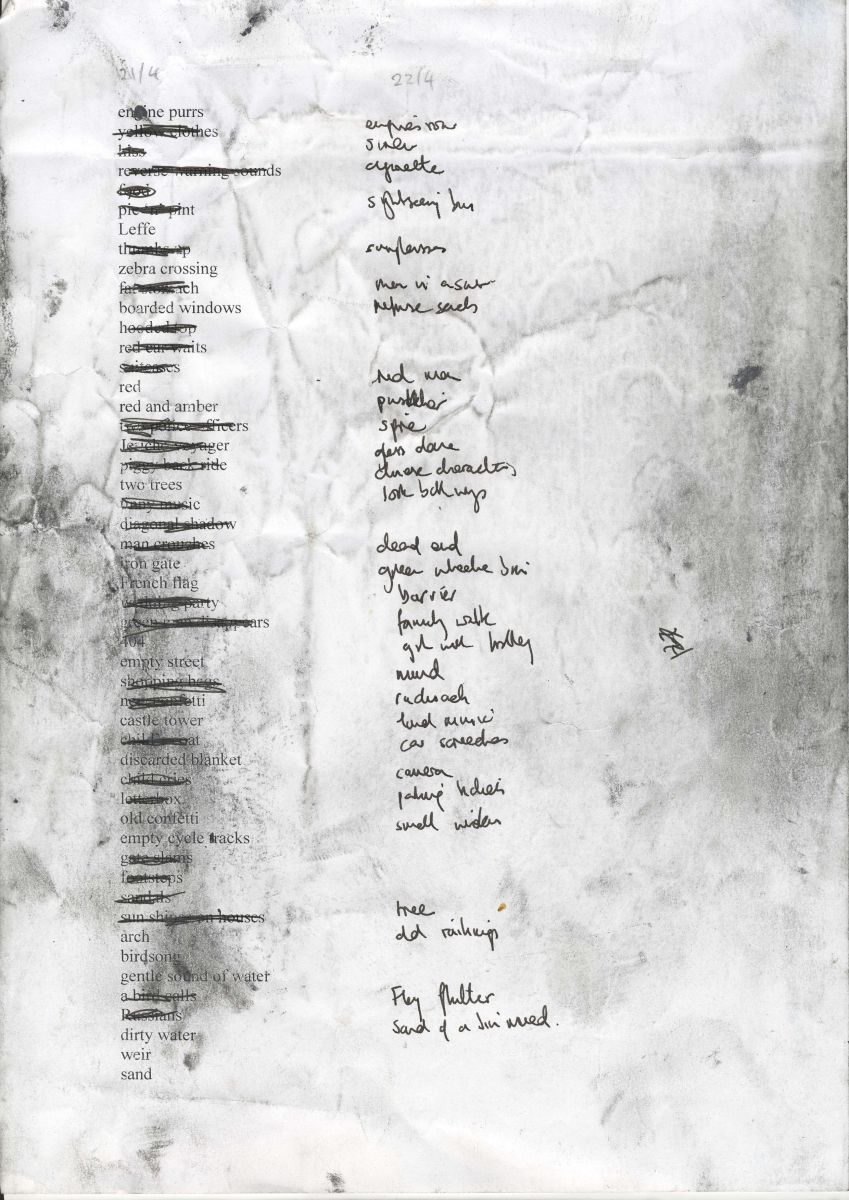 21/4
engine purrs
yellow clothes
hiss
reverse warning sounds
food
pie 'n' pint
Leffe
thumbs up
zebra crossing
fat stomach
boarded windows
hooded top
red car waits
suitcases
red
red and amber
two police officers
piggy back ride
two trees
music
diagonal shadow
man crouches
iron gate
French flag
party
green man disappears
404
empty street
shopping bags
new confetti
castle tower
child's coat
discarded blanket
child cries
letterbox
old confetti
empty cycle tracks
gate slams
footsteps
sandals
sun shines on houses
arch
birdsong
gentle sound of water
a bird calls
Russians
dirty water
weir
sand
22/4
siren
cigarette
sightseeing bus
sunglasses
man in a
refuse sacks
red man
pushchair
spire
glass dome
chinese characters
look both ways
dead end
green wheelie bin
barrier
family walk
girl with trolley
rucksack
loud music
car screeches
camera
parking tickets
small
tree
old railings
Flag flutter
Sand of a bin moved.